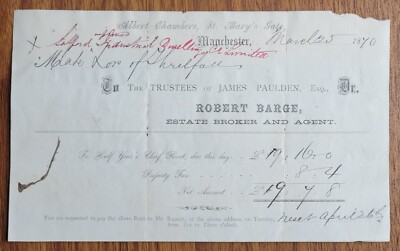 Albert Chambers, St. Mary's Gate,
Manchester, March 25 1870
x Salford Industrial Dwelling Co Limited
late Lot of Threlfall
Dr.
To THE TRUSTEES OF JAMES PAULDEN, Esq.,
ROBERT BARGE,
ESTATE BROKER AND AGENT.
To Half Year's Chief Rent, due this day £ 19. 16. 0
Property Tax 8. 4
Net Amount £19 7 8
You are requested to pay the above Rent to Mr. BARGE, at the above address, on Tuesday, next April 26th
from Ten to Three o'clock.